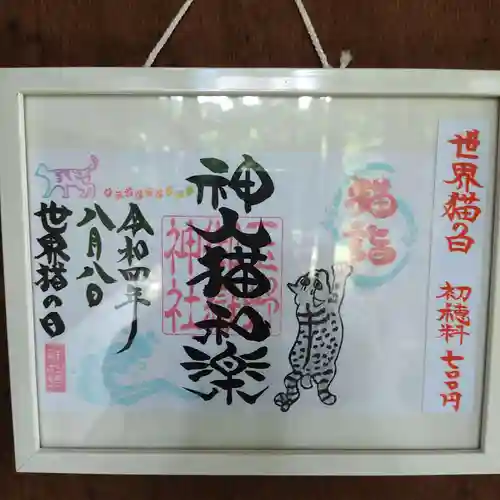 世界猫の日
初穂料 七〇〇円
猫詣
神人猫和楽
神社
令和四年
八月八日
世界猫の日